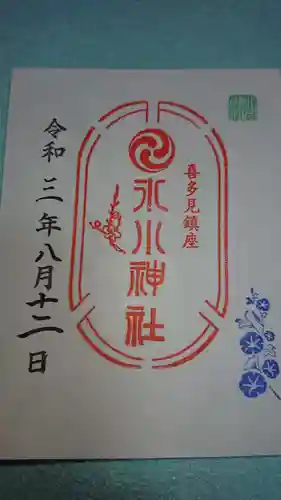 喜多見鎮座
氷川神社
令和三年八月十二日